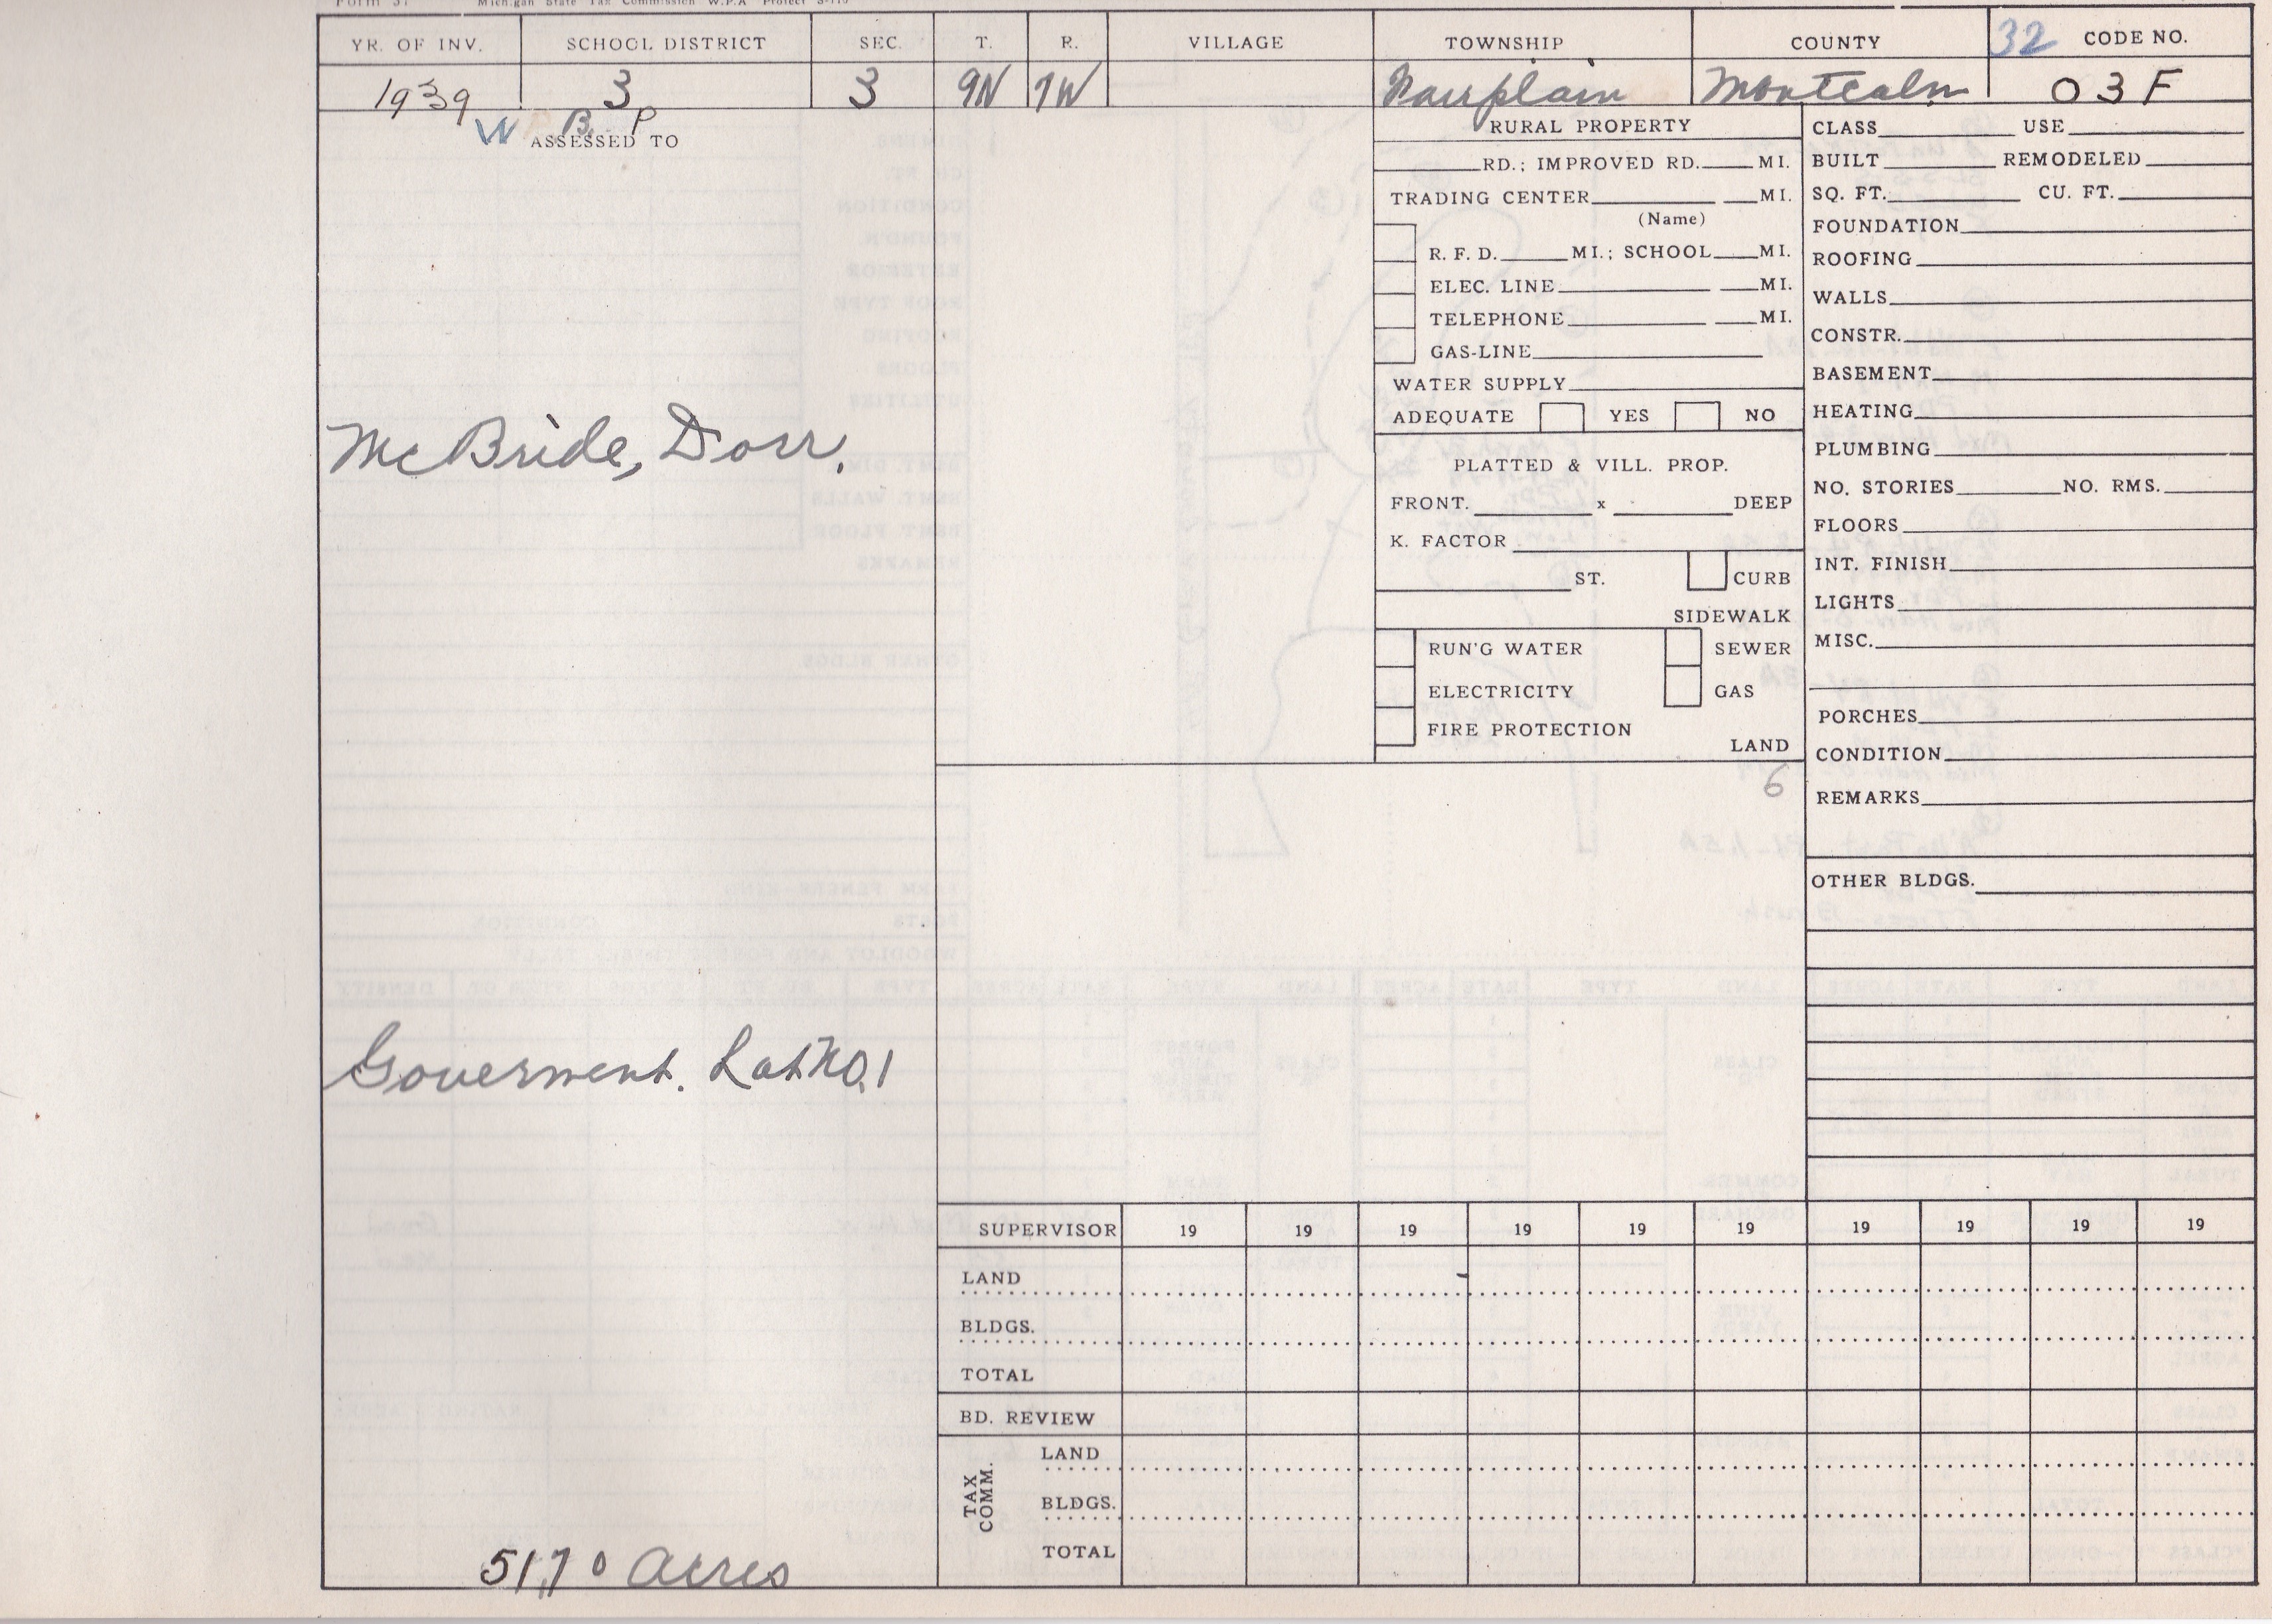 Form 37 Michigan State Tax Commission W.P.A Project S-170
YR. OF INV. SCHOOL DISTRICT SEC. T. R. VILLAGE TOWNSHIP COUNTY 32 CODE NO.
1939 3 3 9N 7W Fairplain Montcalm 03F
W P B. P
ASSESSED TO
McBride, Dorr.
Goverment. Lot No. 1
51,70 Acres
RURAL PROPERTY
RD.; IMPROVED RD. MI.
TRADING CENTER MI.
(Name)
R. F. D. MI.; SCHOOL MI.
ELEC. LINE MI.
TELEPHONE MI.
GAS-LINE
WATER SUPPLY
ADEQUATE YES NO
PLATTED & VILL. PROP.
FRONT. x DEEP
K. FACTOR
ST. CURB
SIDEWALK
RUN'G WATER SEWER
ELECTRICITY GAS
FIRE PROTECTION
LAND
6
CLASS USE
BUILT REMODELED
SQ. FT. CU. FT.
FOUNDATION
ROOFING
WALLS
CONSTR.
BASEMENT
HEATING
PLUMBING
NO. STORIES NO. RMS.
FLOORS
INT. FINISH
LIGHTS
MISC.
PORCHES
CONDITION
REMARKS
OTHER BLDGS.
SUPERVISOR 19 19 19 19 19 19 19 19 19 19
LAND
BLDGS.
TOTAL
BD. REVIEW
TAX COMM.
LAND
BLDGS.
TOTAL